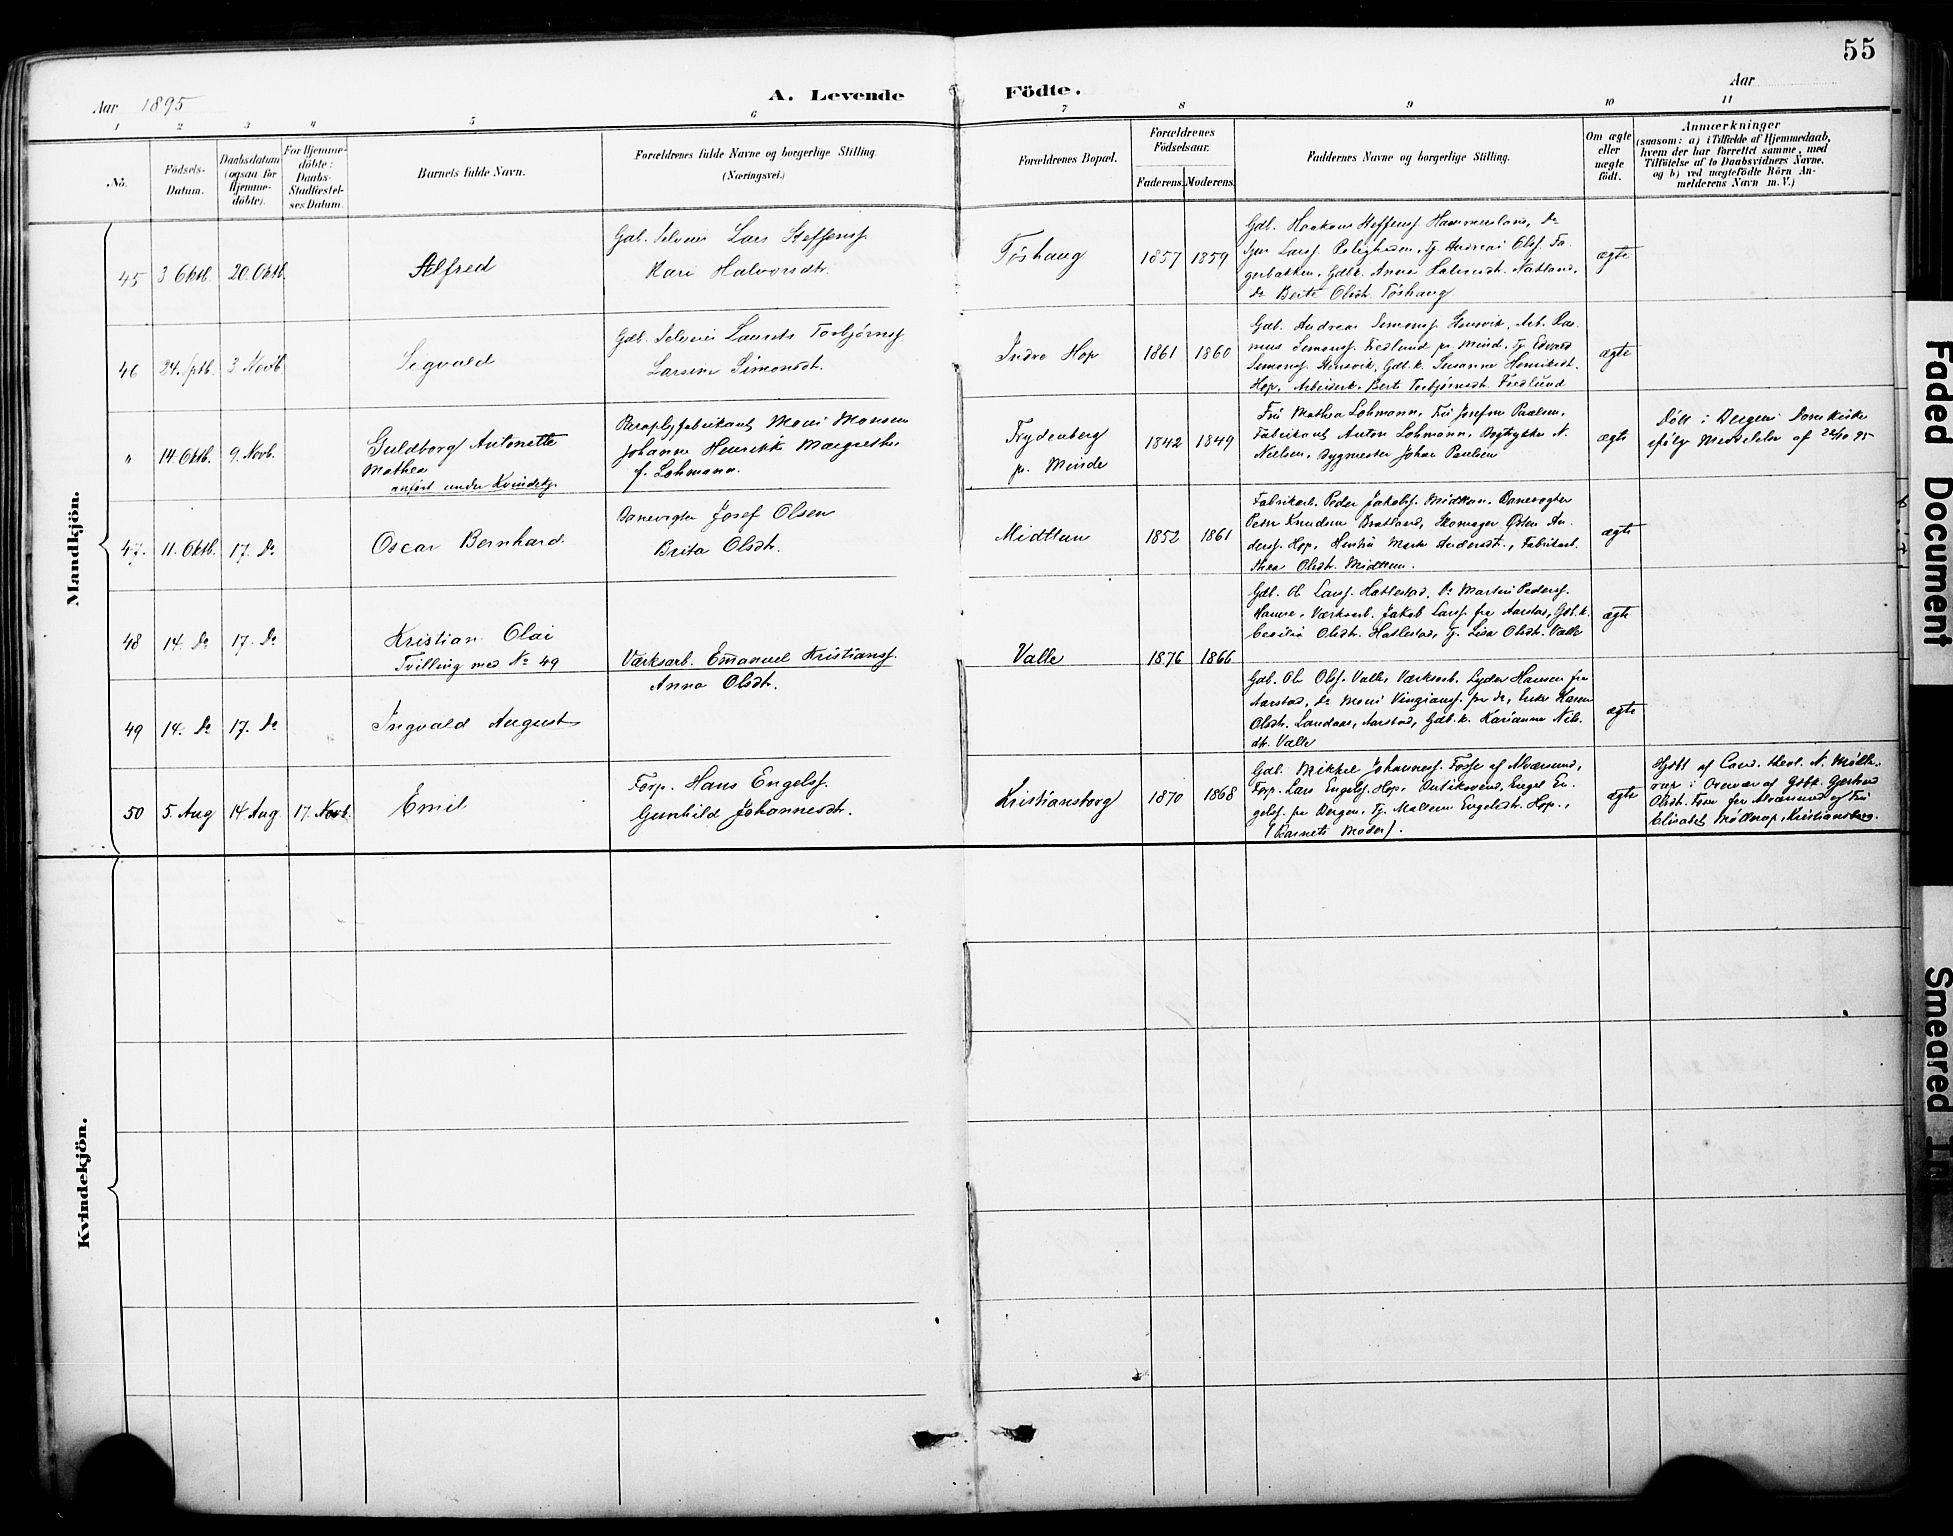 55
Aar 1895
A. Levende Födte.
Aar
1 2 3 4 5 6 7 8 9 10 11
No.
Födsels-
Datum.
Daabsdatum
(ogsaa for
Hjemme-
döbte).
For Hjemme-
döbte:
Daabs-
Stadfæstel-
ses Datum.
Barnets fulde Navn.
Forældrenes fulde Navne og borgerlige Stilling.
(Næringsvei.)
Forældrenes Bopæl.
Forældrenes
Födselsaar.
Faderens. Moderens.
Faddernes Navne og borgerlige Stilling.
Om ægte
eller
uægte
födt.
Anmærkninger
(saasom: a) i Tilfælde af Hjemmedaab,
hvem der har forrettet samme, med
Tilföielse af to Daabsvidners Navne,
og b) ved uægtefödte Börn An-
melderens Navn m. V.)
Mandkjön.
45 3 Oktb. 20. Oktb.
Alfred
Gdb. Selveier Lars Steffensf.
Kari Halvorsdtr.
Töshaug
1857 1859
Gdb. Haakon Steffensf. Hammersland, Do
Larsf. Andreas Olsf. Fa-
gerbakken, Gdbk. Anna Halvorsdtr. Natland,
Do Berte Olsdtr. Töshaug
ægte
46 24. sptb. 3. Novb.
Segvald
Gdb. Selveier Laurits Torbjörnsf.
Larsine Simonsdt.
Indre Hop
1861 1860
Gdb. Andreas Simonsf. Arb. Ras-
mus Simonsf. Fredlund pr. Minde, Tj. Edvard
Simonsf. Gdb.k. Susanne Henriksdt.
Hop, Arbeiderk. Berte Torbjörnsdt. Fredlund
ægte
" 14. Oktb. 9. Novb.
Guldborg Antonette
Mathea
anfört under Kvindekj.
Paraplyfabrikant Moni Monsen
Johanne Henrikke Margrethe
f. Lohmann.
Frydenberg
pr. Minde
1842 1849
Fru Mathea Lohmann, Fru Josefine Paulsen,
Fabrikant Anton Lohmann, Bogtrykker N.
Nielsen, Bygmester Johan Paulsen
ægte
Döbt i Bergens Domkirke
ifölge Meddelelse af 22/10 95
47. 11. Oktb. 17. Do
Oscar Bernhard.
Banevogter Josef Olsen
Brita Olsdtr.
Midttun
1852 1861
Fabrikarb. Peder Jakobsf. Midttun, Banevogter
Peder Knudsen Bratland, Skomager Östen An-
dersf. Hop, Hustru Marte Andersdt., Fabrikarb.
Thea Olsdtr. Midttun.
ægte
48 14. Do 17. Do
Kristian Olai
Tvilling med No 49
Værksarb. Emanuel Kristiansf.
Anna Olsdtr.
Valle
1876 1866
Gdb. Ole Larsf. Hatlestad, Do Martin Pedersf.
Værksarb. Jakob Larsf. fra Aarstad, Gdb.k.
Cecilia Olsdtr. Hatlestad, Tj. Lisa Olsdt. Valle
ægte
49 14. Do 17. Do
Ingvald August
Gdb. Ole Olsf. Valle, Værksarb. Lyder Hansen fra
Aarstad, Do Moni Vingiansf. fra do, Enke Karen
Olsdtr. Landaas, Aarstad, Gdb.k. Karianne Nils-
dtr. Valle
ægte
50 5. Aug 14 Aug 17. Novb.
Emil
Forp. Hans Engelsf.
Gunhild Johannesdt.
Kristiansborg
1870 1868
Gdb. Mikkel Johannesf. Fosse af Alversund,
Forp. Lars Engelsf. Hop, Engel En-
gelsf. fra Bergen, Tj. Malene Engelsdt. Hop,
(Barnets Moder).
ægte
Hjdbt. af Cand. theol. A. Mölle-
rup i Overvær af Gdbk. Gjertrud
Olsdtr. Fosse fra Alversund og Fru
Elisabet Möllerup, Kristiansborg.
Kvindekjön.
Faded Document
Smeared